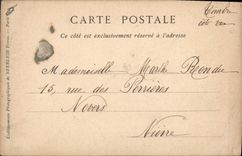 CARTE POSTALE
Ce côté est exclusivement réservé à l'adresse
Timbre
côté vue
Mademoiselle Marthe
15, rue des Perrières
Nevers
Nièvre
Etablissements Photographiques de NEURDEIN Frères. - Paris